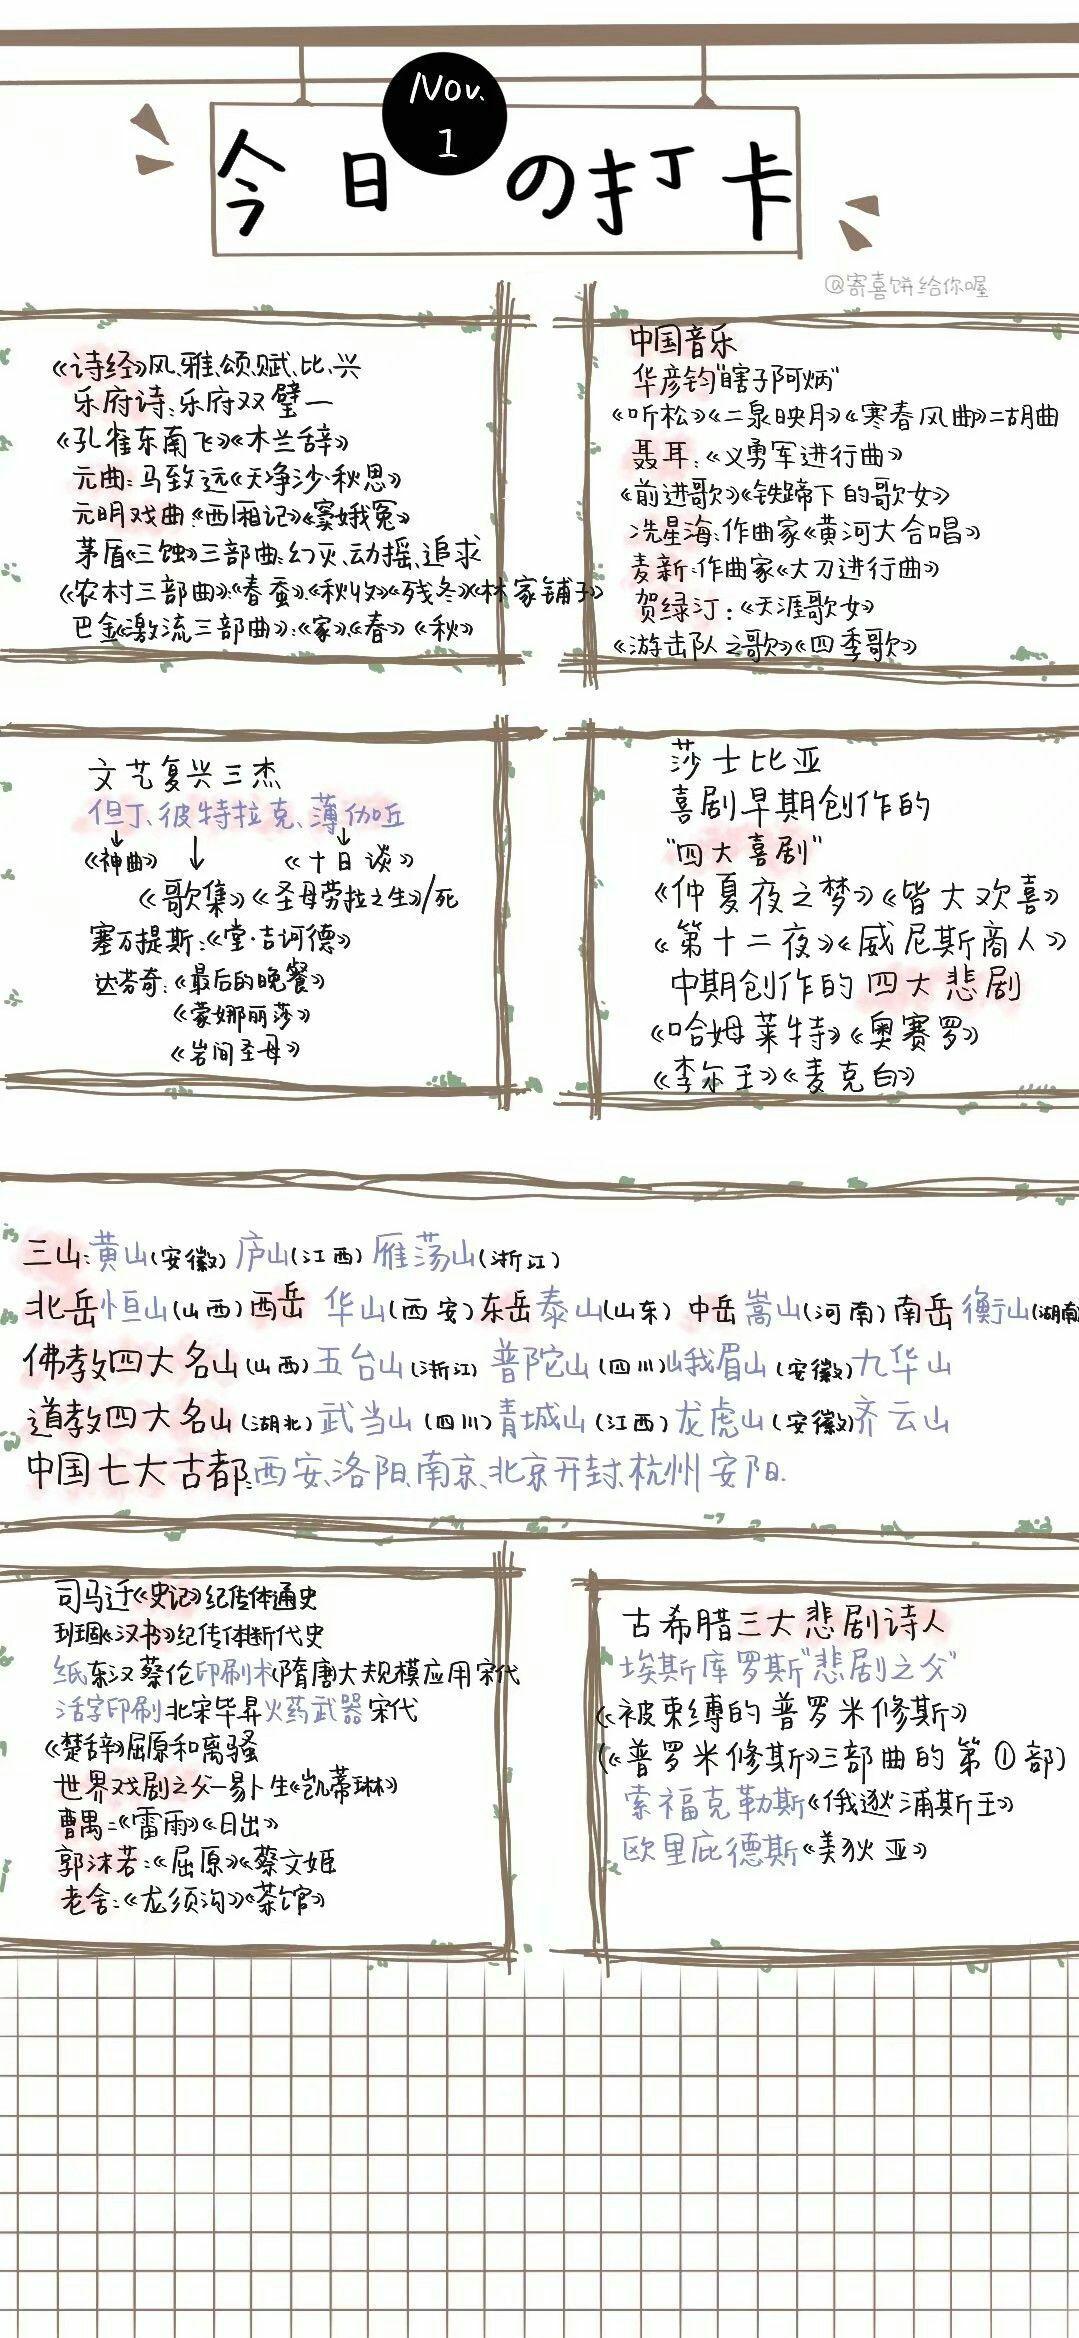 Nov.
1
今日の打卡
@寄喜饼给你喔
《诗经》风、雅、颂、赋、比、兴
乐府诗:乐府双璧一
《孔雀东南飞》《木兰辞》
元曲:马致远《天净沙·秋思》
元明戏曲:《西厢记》《窦娥冤》
茅盾《三蚀》三部曲:幻灭、动摇、追求
《农村三部曲》:《春蚕》、《秋收》《残冬》《林家铺子》
巴金《激流三部曲》:《家》、《春》《秋》
中国音乐
华彦钧"瞎子阿炳"
《听松》《二泉映月》《寒春风曲》二胡曲
聂耳:《义勇军进行曲》
《前进歌》《铁蹄下的歌女》
冼星海:作曲家《黄河大合唱》
麦新:作曲家《大刀进行曲》
贺绿汀:《天涯歌女》
《游击队之歌》《四季歌》
文艺复兴三杰
但丁、彼特拉克、薄伽丘
《神曲》 《十日谈》
《歌集》《圣母劳拉之生》/死
塞万提斯:《堂·吉诃德》
达芬奇:《最后的晚餐》
《蒙娜丽莎》
《岩间圣母》
莎士比亚
喜剧早期创作的
"四大喜剧"
《仲夏夜之梦》《皆大欢喜》
《第十二夜》《威尼斯商人》
中期创作的四大悲剧
《哈姆莱特》《奥赛罗》
《李尔王》《麦克白》
三山:黄山(安徽)庐山(江西)雁荡山(浙江)
北岳恒山(山西)西岳 华山(西安)东岳泰山(山东)中岳嵩山(河南)南岳衡山(湖南
佛教四大名山(山西)五台山(浙江)普陀山(四川)峨眉山(安徽)九华山
道教四大名山(湖北)武当山(四川)青城山(江西)龙虎山(安徽)齐云山
中国七大古都:西安、洛阳、南京、北京开封、杭州安阳.
司马迁《史记》纪传体通史
班固《汉书》纪传体断代史
纸东汉蔡伦印刷术(隋唐大规模应用宋代
活字印刷北宋毕昇火药武器宋代
《楚辞》屈原和离骚
世界戏剧之父一易卜生《凯蒂琳》
曹禺:《雷雨》《日出》
郭沫若:《屈原》《蔡文姬
老舍:《龙须沟》《茶馆》
古希腊三大悲剧诗人
埃斯库罗斯"悲剧之父"
《被束缚的普罗米修斯》
(《普罗米修斯》三部曲的第①部)
索福克勒斯《俄狄浦斯王》
欧里庇德斯《美狄亚》